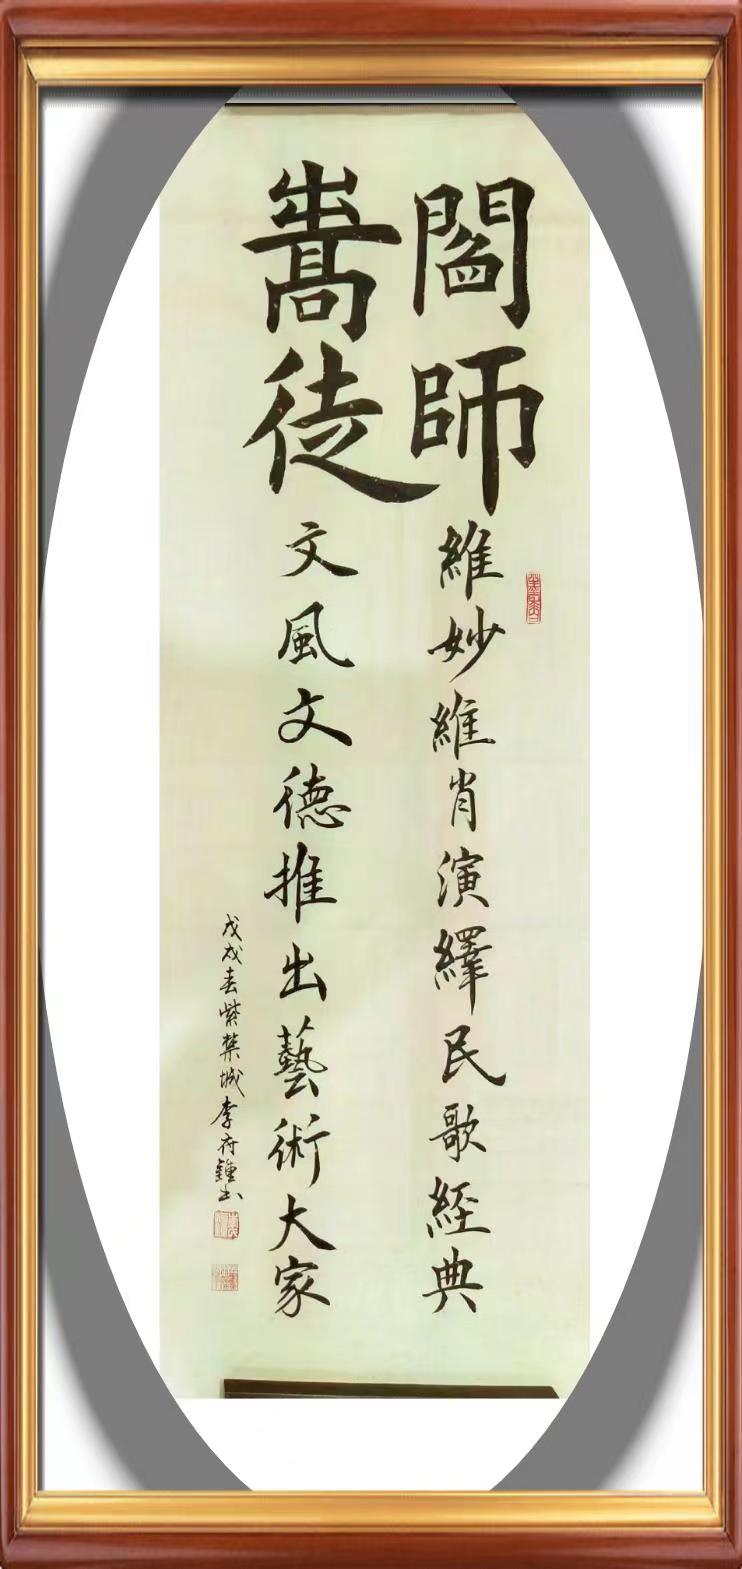 閻師維妙維肖演繹民歌經典
嵩徒文風文德推出藝術大家
戊戌春紫禁城李府鍾书